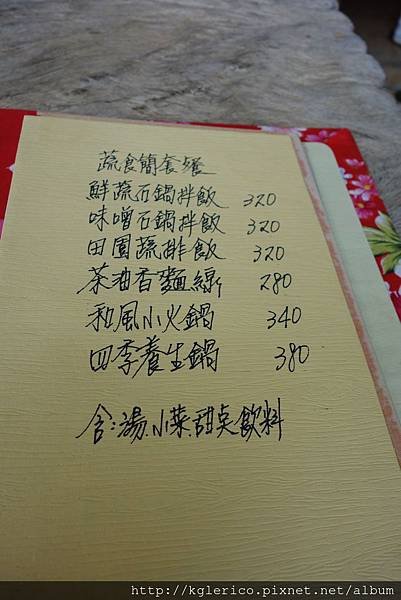 蔬食簡套餐
鮮蔬石鍋拌飯 320
味噌石鍋拌飯 320
田園蔬排飯 320
茶油香麵線 280
和風小火鍋 340
四季養生鍋 380
含:湯.小菜.甜点飲料
http://kglerico.pixnet.net/album